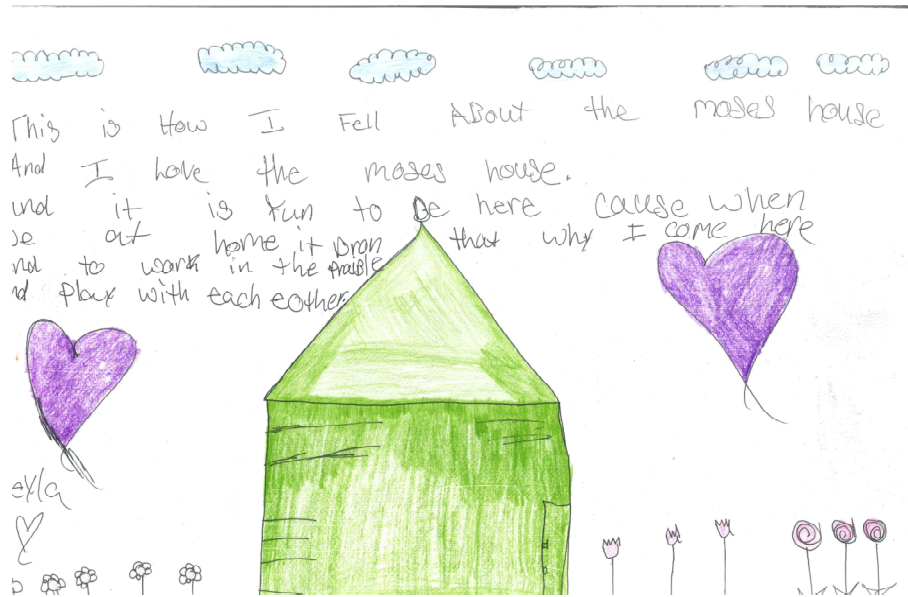 This is How I Fell ABout the moses house
And I love the moses house.
und it is fun to be here cause when
at home it Bron that why I come here
to work in the
Play with each eother
exla